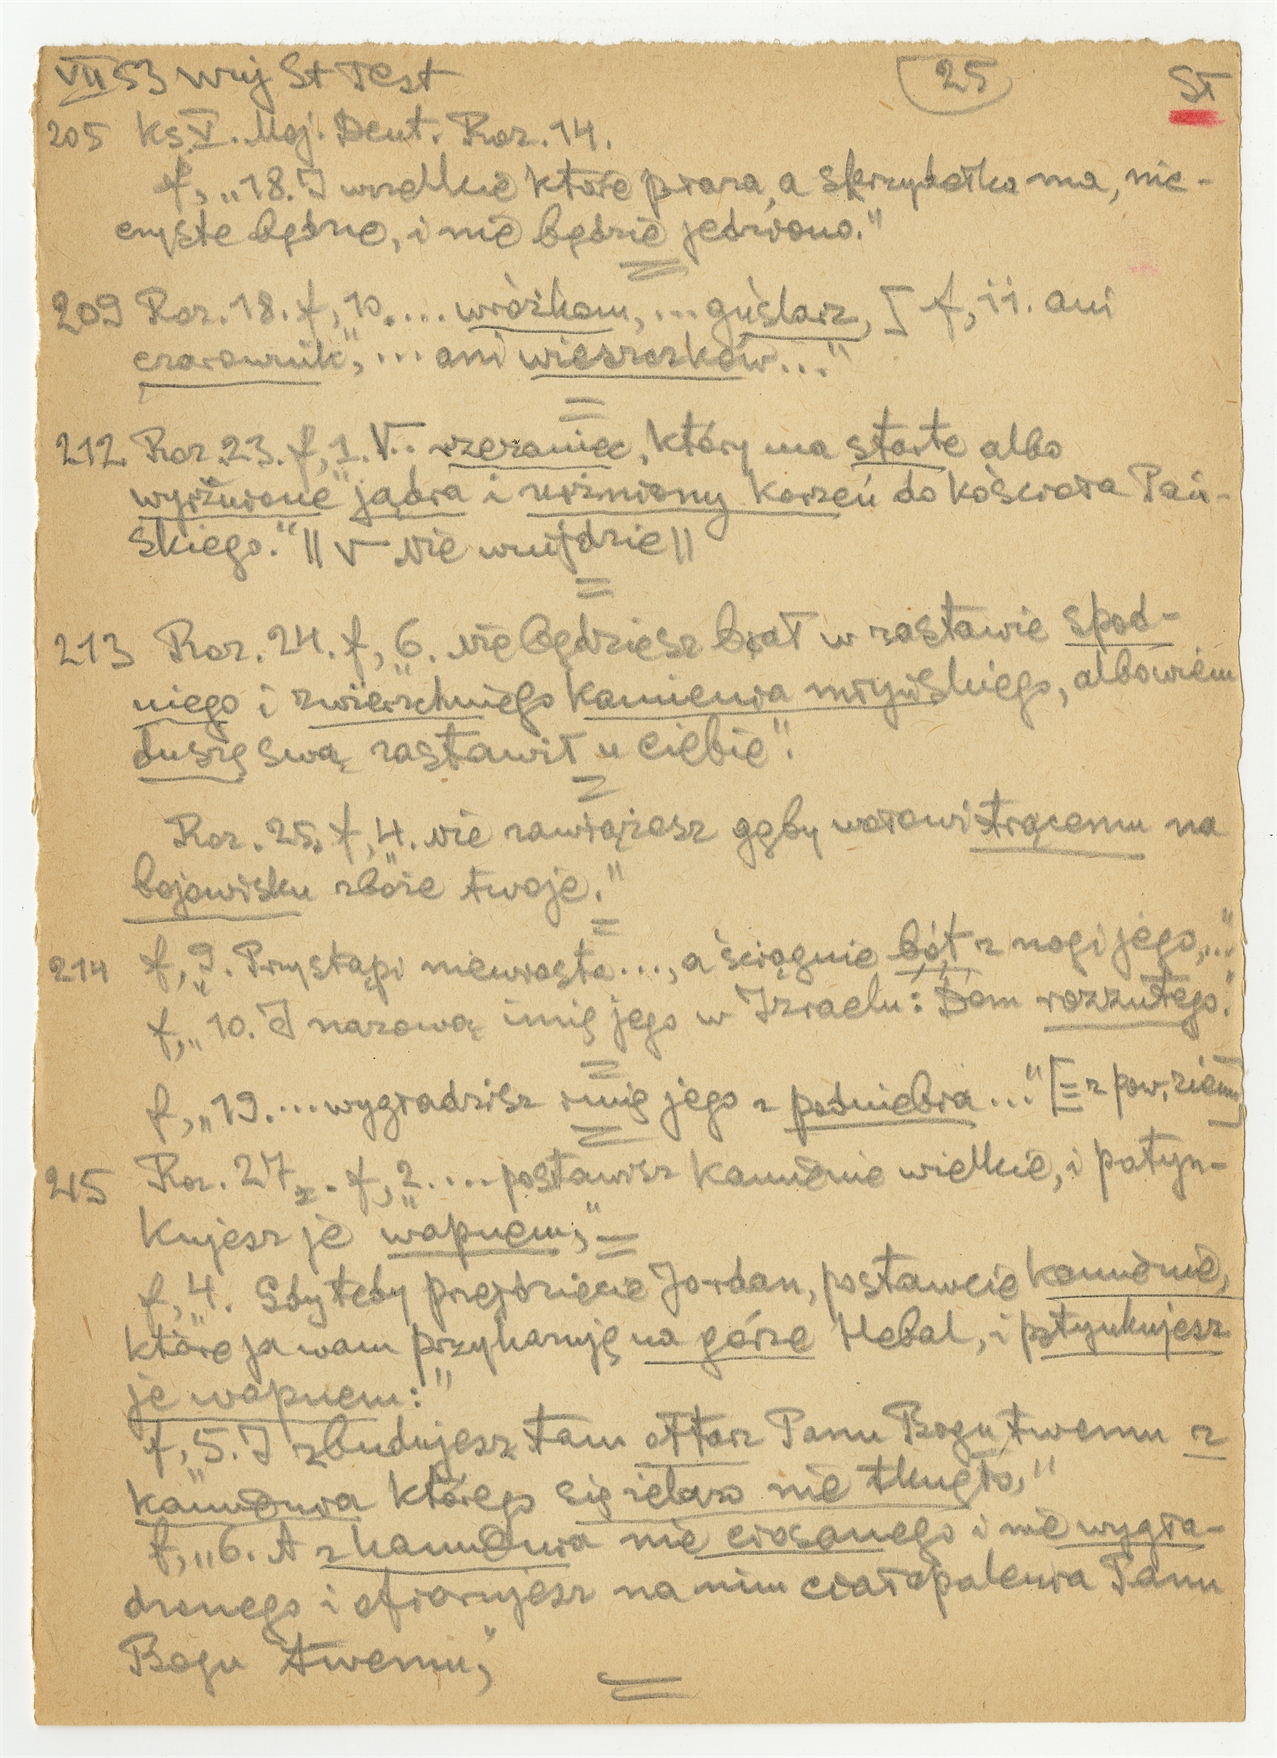 VII 53 Wuj St Test 25 ST
205 Ks. V. Moj. Deut. Roz. 14.
f, „18. I wszelkie które piora, a skrzydełka ma, nie-
czyste będzie, i nie będzie jedziono."
=
209 Roz. 18. f, „10. ... wróżkom, ... guślarz, [ f, 11. ani
czarownik, ... ani wieszczków..."
=
212. Roz. 23. f, „1. V.. rzezaniec, który ma starte albo
wyrżnione jądra i urzniony korzeń do kościoła Pań-
skiego." || V nie wnijdzie ||
=
213 Roz. 24. f, „6. Nie będziesz brał w zastawie spod-
niego i zwierzchniego kamienia młyńskiego, albowiem
duszę swą zastawił u ciebie".
=
Roz. 25. f, „4. Nie zawiążesz gęby wołowi trącemu na
bojowisku zboże twoje."
=
214 f, „9. Przystąpi niewiasta..., a ściągnie bót z nogi jego,..."
f, „10. I nazową imię jego w Izraelu: Dom rozzutego."
=
f, „19. ... wygładzisz imię jego z podniebia..." [= z pow. ziemi]
=
215 Roz. 27. f, „2. ... postawisz kamienie wielkie, i potyn-
kujesz je wapnem," =
f, „4. Gdy tedy przejdziecie Jordan, postawcie kamienie,
które ja wam przykazuję na górze Hebal, i potynkujesz
je wapnem:"
f, „5. I zbudujesz tam ołtarz Panu Bogu twemu z
kamienia którego się żelazo nie tknęło,"
f, „6. A z kamienia nie ciosanego i nie wygła-
dzonego i ofiarujesz na nim całopalenia Panu
Bogu twemu,"
=